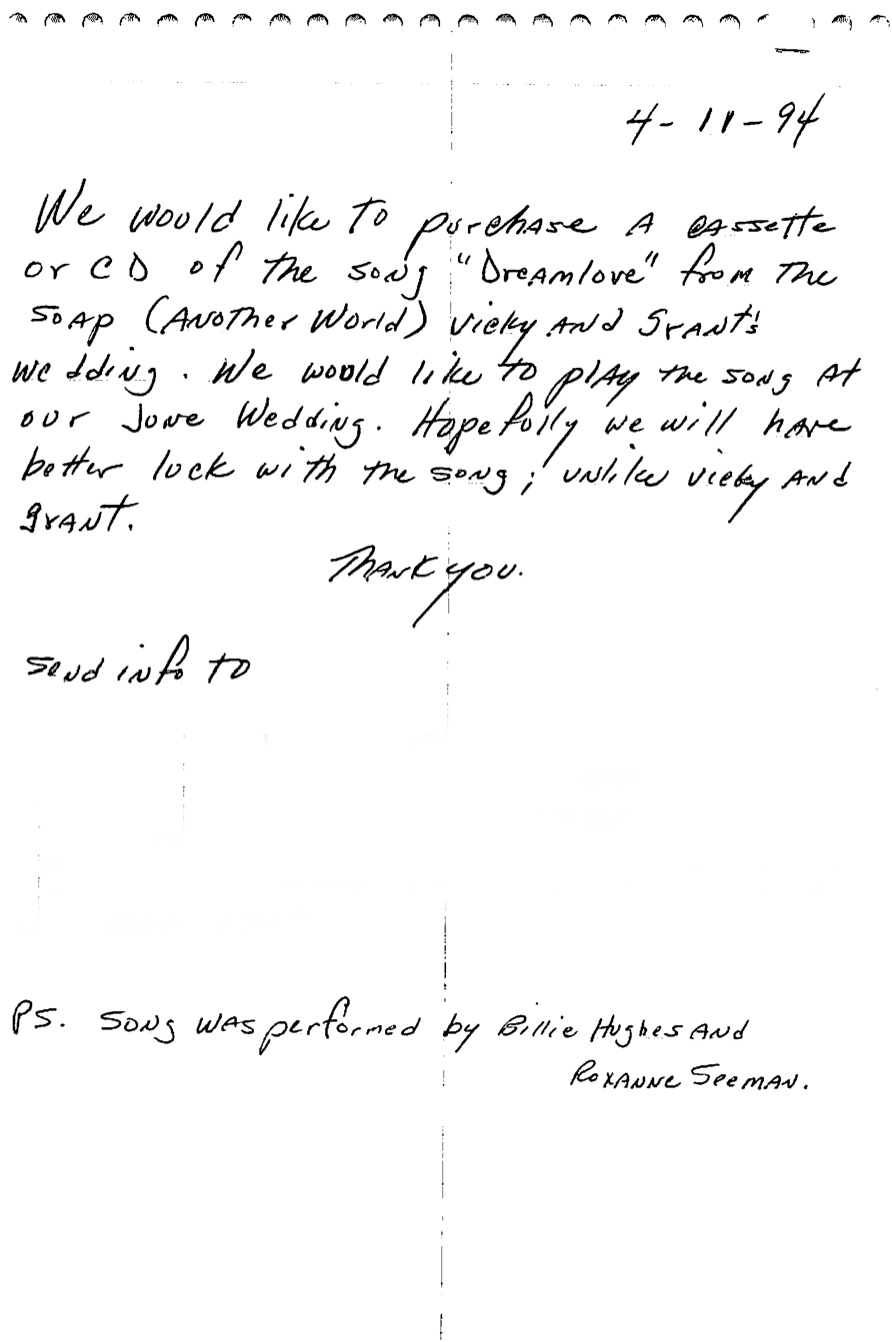 4-11-94
We would like to purchase a cassette
or CD of the song "Dreamlove" from the
soap (Another World) Vicky and Grant's
wedding. We would like to play the song at
our June Wedding. Hopefully we will have
better luck with the song; unlike Vicky and
grant.
Thank you.
Send info to
PS. Song was performed by Billie Hughes and
Roxanne Seeman.